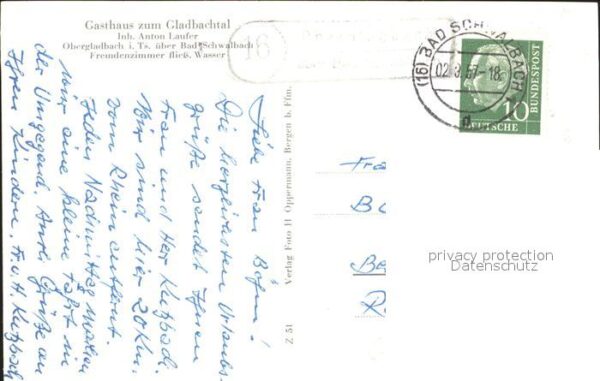 Gasthaus zum Gladbachtal
Inh. Anton Laufer
Obergladbach i. Ts. über Bad Schwalbach
Freundenzimmer fließ. Wasser
16
(16) BAD SCHWALBACH
02.3.57-18
d
10
DEUTSCHE
BUNDESPOST
Liebe Frau Böhm!
Die herzlichsten Urlaubs-
grüße sendet Ihnen
Frau und Herr Kutzbach.
Wir sind hier 20 Km.
vom Rhein entfernt.
Jeden Nachmittag machen
wir eine kleine Fahrt in
der Umgegend. Auch Grüße an
Ihren Kindern. Fr. u. H. Kutzbach
Z 51
Verlag Foto H Oppermann, Bergen b. Ffm.
Fra
B
Be
R
privacy protection
Datenschutz